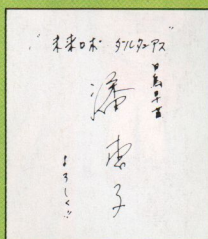 "未来ロボ ダルタニアス"
白鳥早苗
潘恵子
よろしく!!